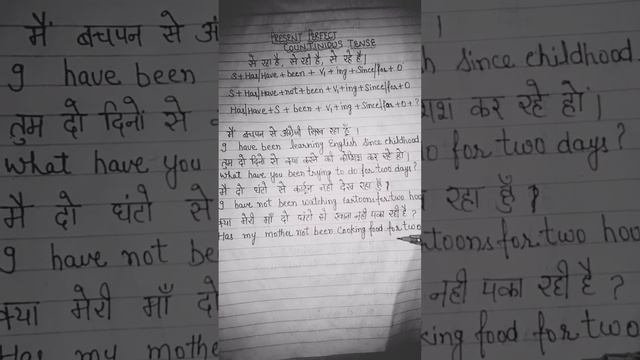 PRESENT PERFECT
COUNTINIOUS TENSE
से रहा है, से रही है, से रहे है।
S + Has/Have + been + V₁ + ing + Since/for + O
S + Has/Have + not + been + V₁ + ing + Since/for + O
Has/Have + S + been + V₁ + ing + Since/for + O + ?
मैं बचपन से अंग्रेजी सिख रहा हूँ।
I have been learning English Since childhood
तुम दो दिनो से क्या करने की कोशिश कर रहे हो।
What have you been trying to do for two days?
मै दो घंटो से कार्टून नही देख रहा हूँ?
I have not been watching cartoons for two hou
क्या मेरी माँ दो घंटो से खाना नही पका रही है?
Has my mother not been Cooking food for two